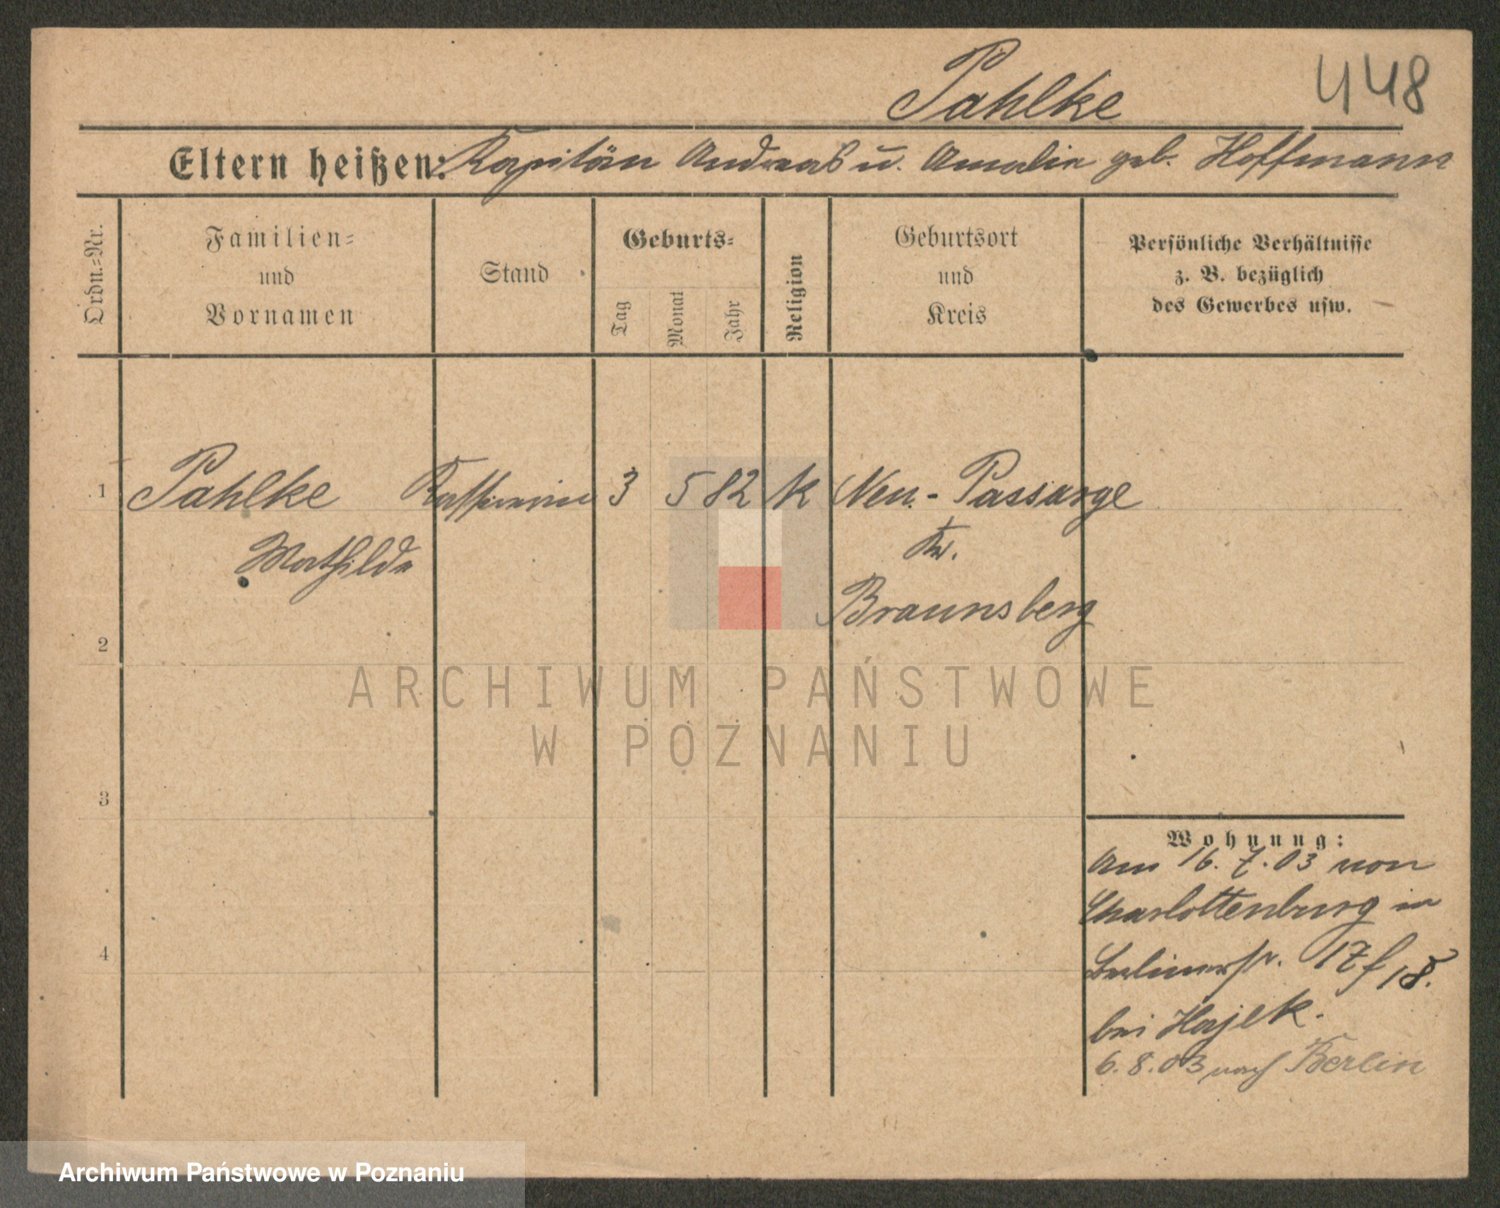 Pahlke
448
Eltern heißen: Kapitän Andreas u. Amalie geb. Hoffmann
Ordn.-Nr.
Familien-
und
Vornamen
Stand
Geburts-
Tag
Monat
Jahr
Religion
Geburtsort
und
Kreis
Persönliche Verhältnisse
z. B. bezüglich
des Gewerbes usw.
1 Pahlke Kassiererin 3 5 82 k Neu-Passarge
Mathilde Kr.
Braunsberg
2
3
4
ARCHIWUM PAŃSTWOWE
W POZNANIU
Wohnung:
Am 16.7.03 von
Charlottenburg in
Berlinerstr. 17/18.
bei Hajek.
6.8.03 nach Berlin
Archiwum Państwowe w Poznaniu